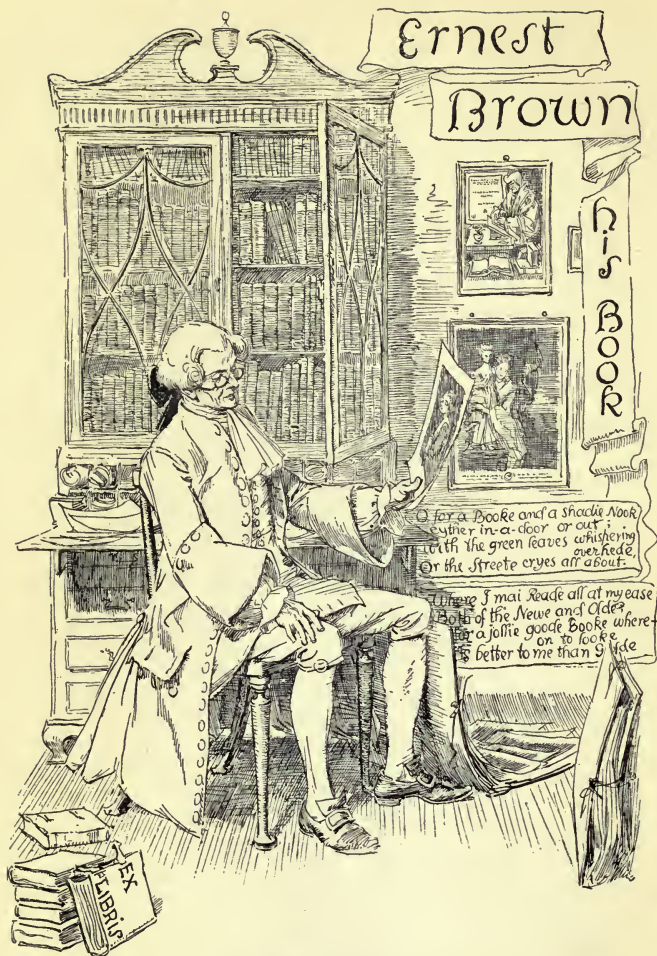 Ernest
Brown
his BOOK
O for a Booke and a shadie Nook
eyther in-a-door or out;
With the green leaves whishering
overhede,
Or the Streete cryes all about.
Where I mai Reade all at my ease
Both of the Newe and Olde,
For a jollie goode Booke where-
on to looke
Is better to me than Golde
EX
LIBRIS